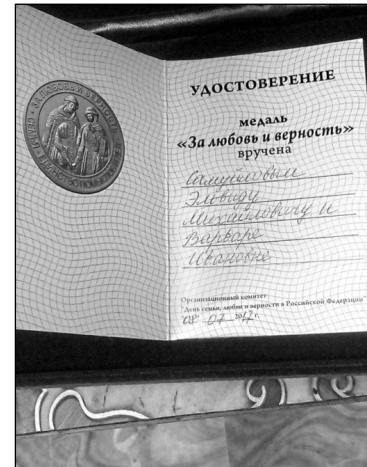 УДОСТОВЕРЕНИЕ
медаль
«За любовь и верность»
вручена
Самуиловым
Эловиду
Михайловичу и
Варваре
Ивановне
Организационный комитет
"День семьи, любви и верности в Российской Федерации"
"08" 07 2017 г.
ЗА ЛЮБОВЬ И ВЕРНОСТЬ